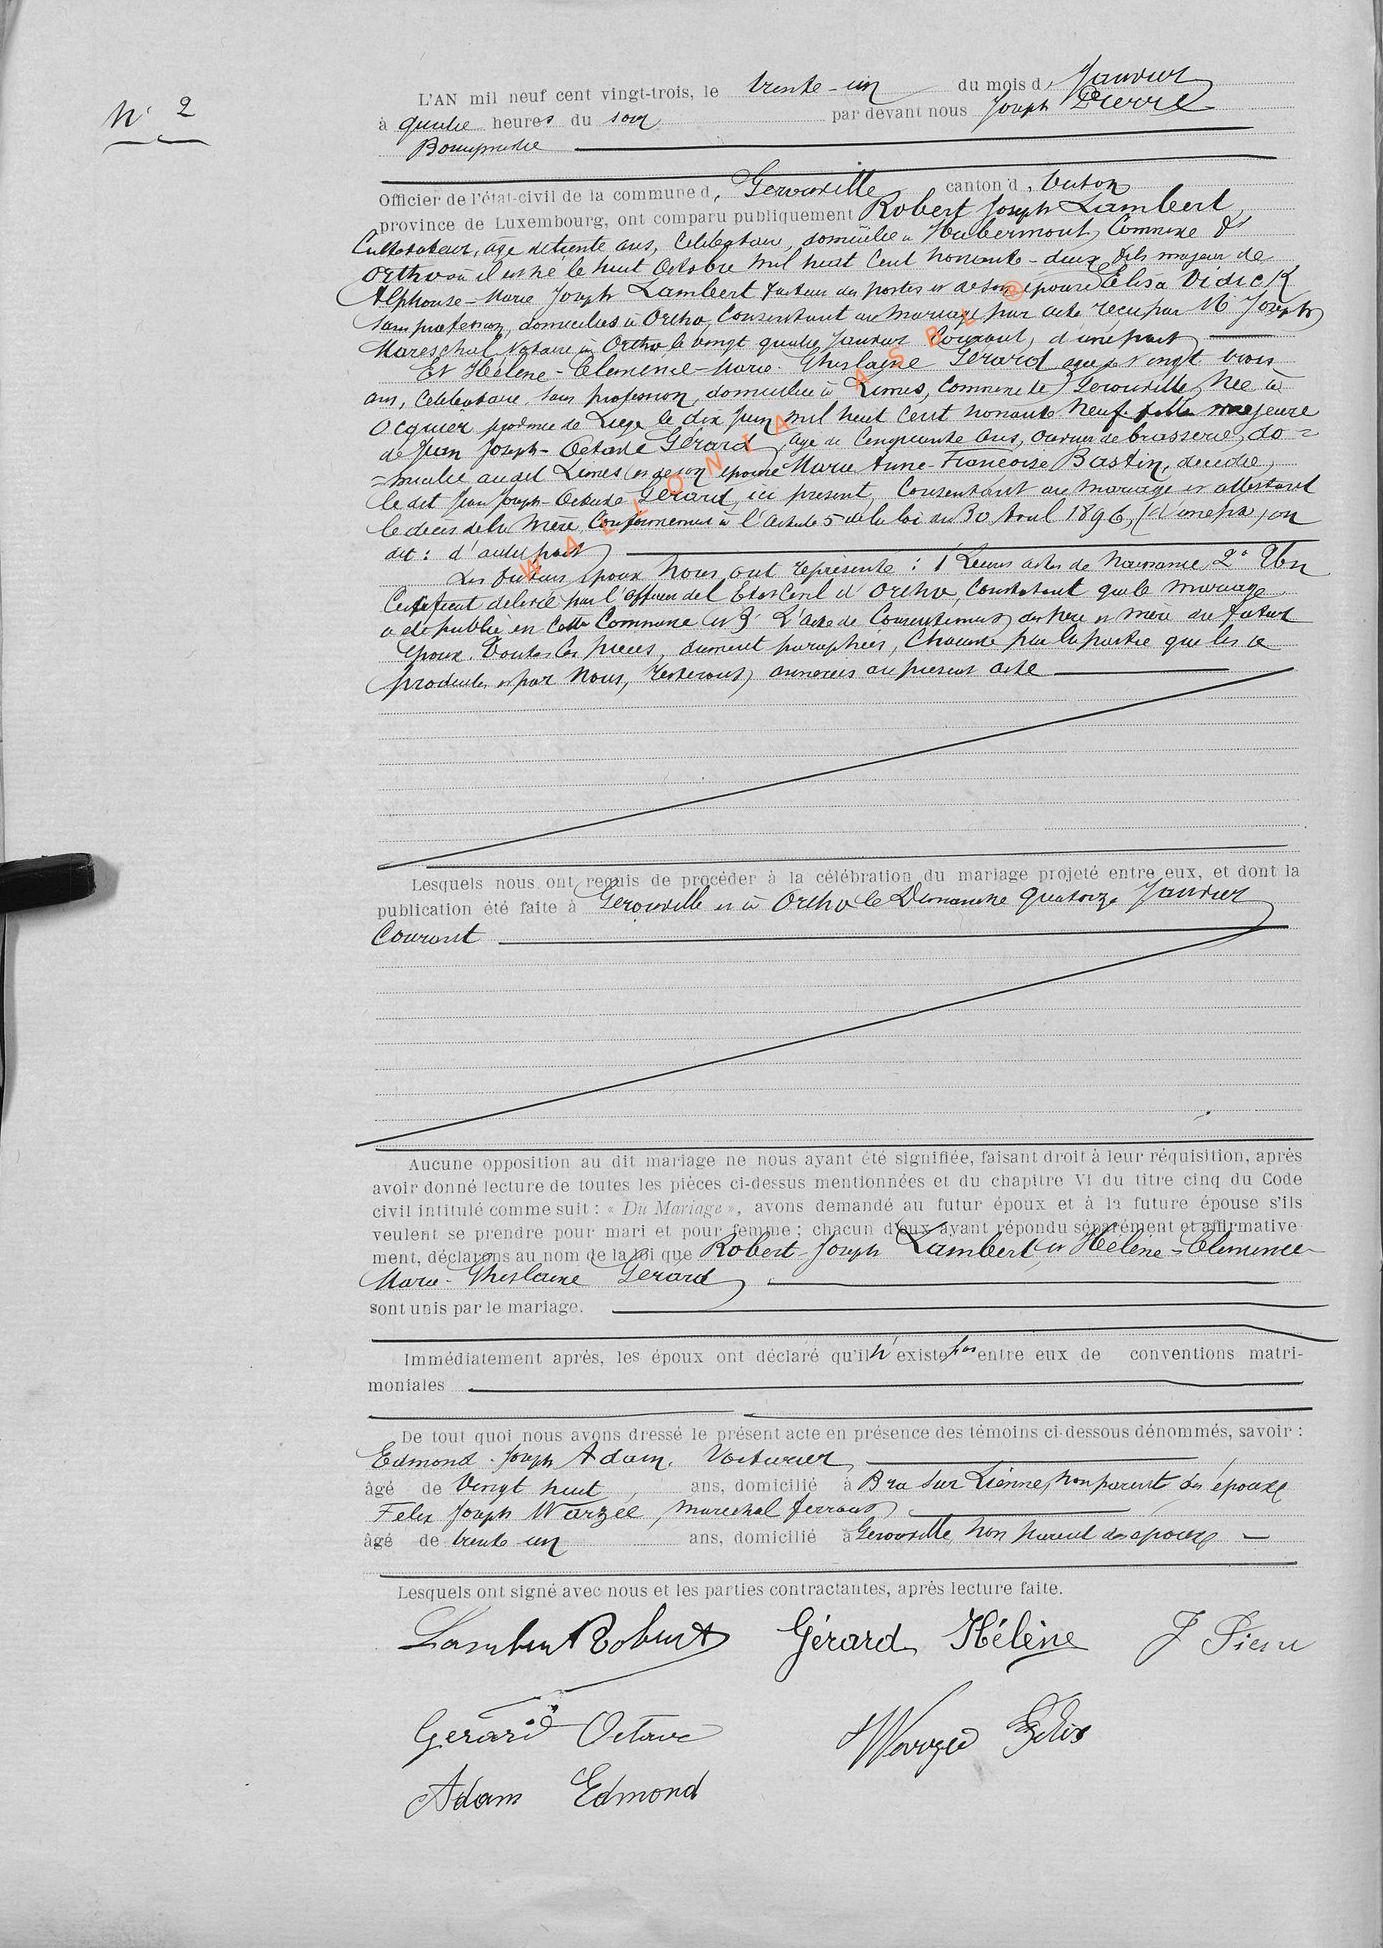 N° 2
L'AN mil neuf cent vingt-trois, le trente-un du mois d, Janvier
à quatre heures du soir par devant nous Joseph Pierre
Bourgmestre
Officier de l'état-civil de la commune d, Gerouville canton d, Virton
province de Luxembourg, ont comparu publiquement Robert Joseph Lambert
Cultivateur, age de trente ans, Celibataire, domicilie a Hubermont, Commune d'
Ortho où il est né le huit Octobre mil huit Cent nonante-deux, fils majeur de
Alphonse-Marie Joseph Lambert facteur des postes et de son épouse Elisa Vidick
sans profession, domicilies à Ortho, Consentant au mariage par acte recu par Me Joseph
Mareschal, Notaire à Ortho le vingt quatre Janvier Courant, d'une part
Et Hélène-Clemence-Marie-Ghislaine Gérard agée de vingt trois
ans, Célibataire, sans profession, domiciliee à Limes, Commune de Gerouville, Née à
Ocquier province de Liege le dix Juin mil huit Cent nonante neuf, fille majeure
de Jean Joseph-Octave Gérard, age de Cinquante ans, ouvrier de brasserie, do=
=micilie audit Limes et de son épouse Marie Anne-Francoise Bastin, décédée,
le dit Jean Joseph-Octave Gérard, ici présent, Consentant au mariage et attestant
le deces de la Mère Conformement à l'article 5 de la loi du 30 Avril 1896, (d'une part) on
dit : d'autre part
Les futurs époux Nous ont représenté : 1° Leurs actes de Naissance 2° Un
Certificat délivré par l'officier de l'Etat Civil d'Ortho, Constatant que le mariage
a été publié en Cette Commune et 3° L'acte de Consentement des père et mère du futur
époux. Toutes les pieces, dument paraphées, Chacune par la partie qui les a
produites et par Nous, resteront annexées au present acte
Lesquels nous ont requis de procéder à la célébration du mariage projeté entre eux, et dont la
publication été faite à Gerouville et à Ortho le Dimanche quatorze Janvier
Courant
Aucune opposition au dit mariage ne nous ayant été signifiée, faisant droit à leur réquisition, après
avoir donné lecture de toutes les pièces ci-dessus mentionnées et du chapitre VI du titre cinq du Code
civil intitulé comme suit : « Du Mariage », avons demandé au futur époux et à la future épouse s'ils
veulent se prendre pour mari et pour femme ; chacun d'eux ayant répondu séparément et affirmative
ment, déclarons au nom de la loi que Robert-Joseph Lambert et Hélène-Clemence-
Marie-Ghislaine Gérard
sont unis par le mariage.
Immédiatement après, les époux ont déclaré qu'il n'existe pas entre eux de conventions matri-
moniales
De tout quoi nous avons dressé le présent acte en présence des témoins ci-dessous dénommés, savoir :
Edmond Joseph Adam, Voiturier,
âgé de Vingt huit ans, domicilié à Bra sur Lienne, non parent des époux
Felix Joseph Warzée, marechal ferrant
âgé de trente un ans, domicilié à Gerouville, Non parent des époux
Lesquels ont signé avec nous et les parties contractantes, après lecture faite.
Lambert Robert Gérard Hélène J Pierre
Gérard Octave Warzée Félix
Adam Edmond
WALLONIA ASBL ©